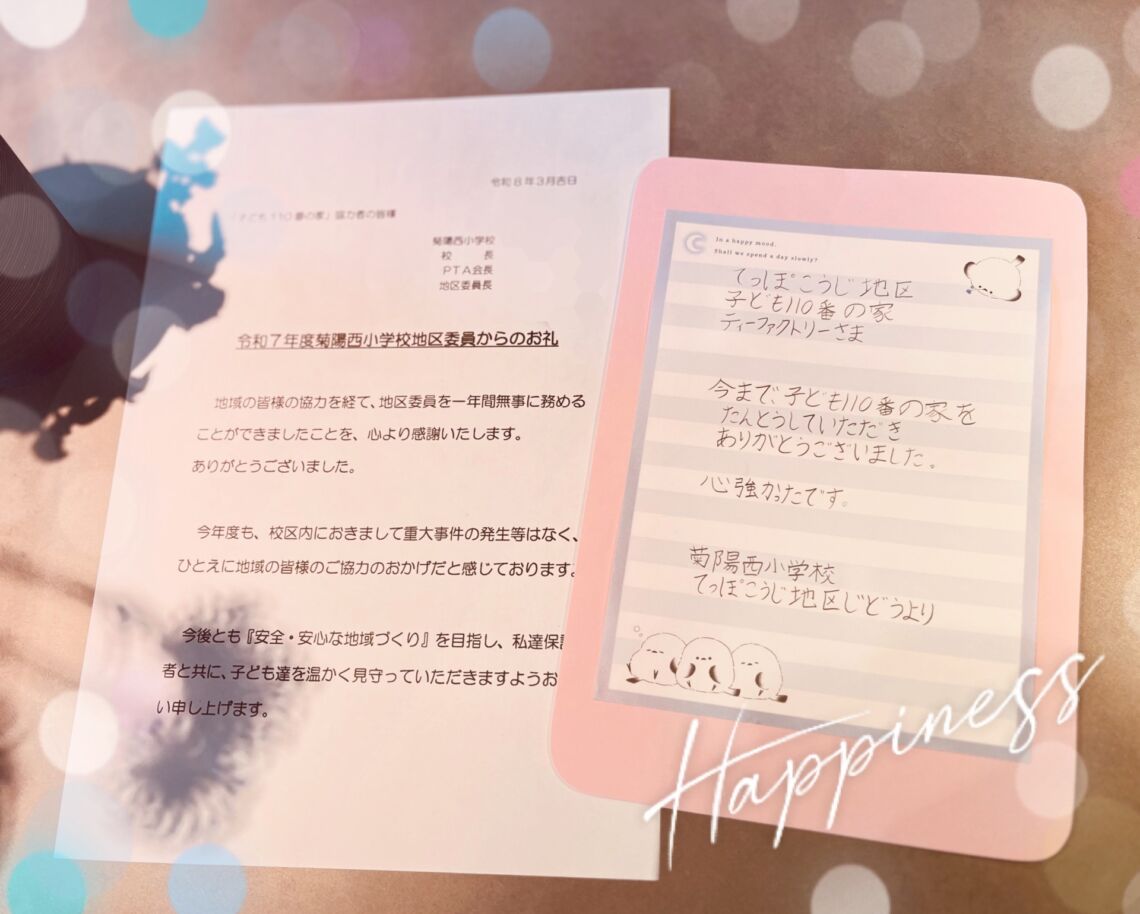 令和8年3月吉日
「子ども110番の家」協力者の皆様
菊陽西小学校
校　　長
PTA会長
地区委員長
令和7年度菊陽西小学校地区委員からのお礼
地域の皆様の協力を経て、地区委員を一年間無事に務める
ことができましたことを、心より感謝いたします。
ありがとうございました。
今年度も、校区内におきまして重大事件の発生等はなく、
ひとえに地域の皆様のご協力のおかげだと感じております。
今後とも『安全・安心な地域づくり』を目指し、私達保護
者と共に、子ども達を温かく見守っていただきますようお
い申し上げます。
In a happy mood.
Shall we spend a day slowly?
てっぽこうじ地区
子ども110番の家
ティーファクトリーさま
今まで、子ども110番の家を
たんとうしていただき
ありがとうございました。
心強かったです。
菊陽西小学校
てっぽこうじ地区じどうより
Happiness